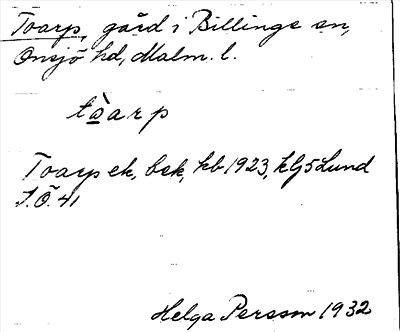 Toarp, gård i Billinge sn,
Onsjö hd, Malm. l.
tòarp
Toarp ek, bsk, kb 1923, klj5 Lund
S.Ö. 41
Helga Persson 1932